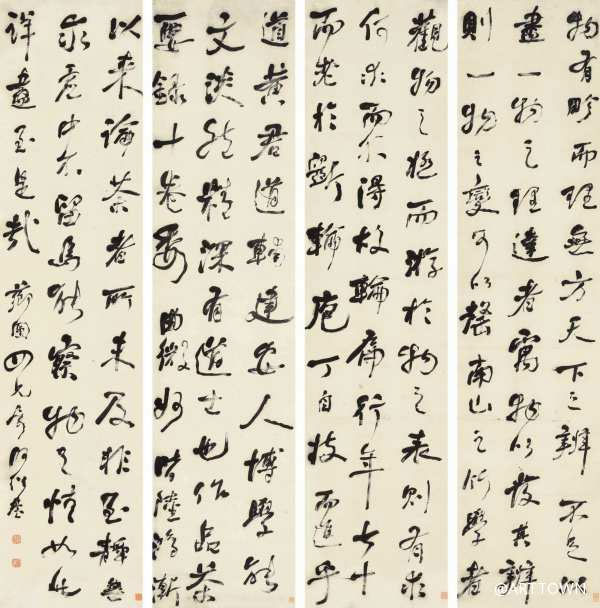 物有畛而理無方天下之辯不足以
盡一物之理達者寓物以發其辯
則一物之變可以罄南山之竹學者
觀物之極而游於物之表則有求
何求而不得故輪扁行年七十
而老於斲輪庖丁自技而進乎
道黃君道輔建安人博學能
文淡然精深有道士也作品茶
要錄十卷委曲微妙皆陸鴻漸
以來論茶者所未及非至靜無
求虛中不留烏能察物之情如此
詳盡至是哉 四兄屬 何紹基
@ARTTOWN